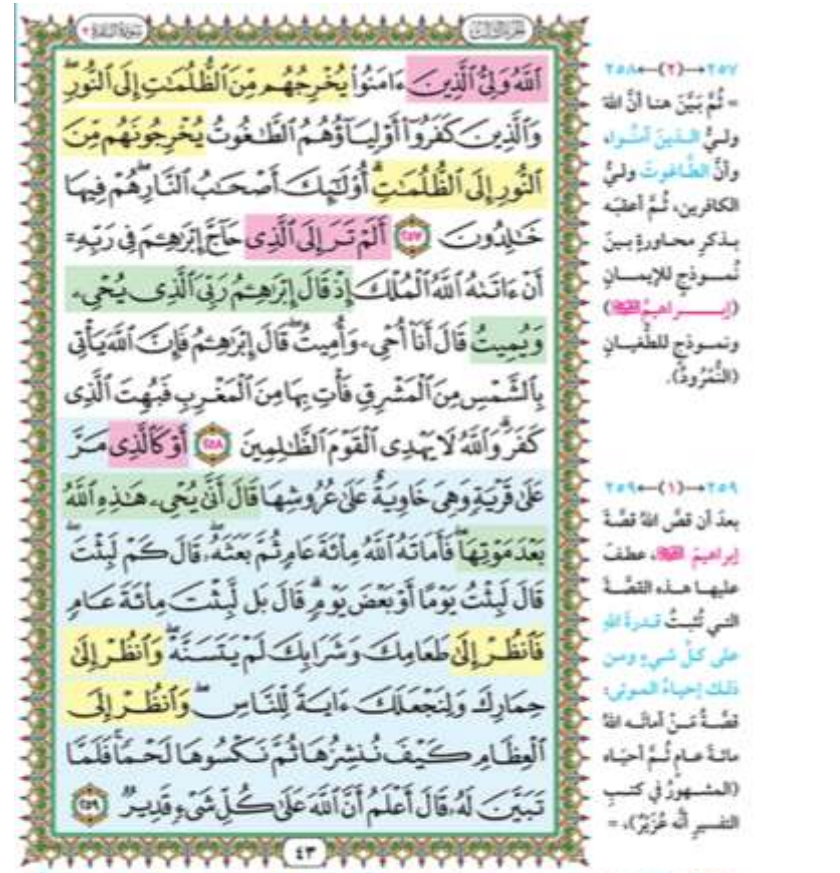 سورة البقرة ٢
الجزء الثالث
ٱللَّهُ وَلِىُّ ٱلَّذِينَ ءَامَنُوا۟ يُخْرِجُهُم مِّنَ ٱلظُّلُمَـٰتِ إِلَى ٱلنُّورِ ۖ
وَٱلَّذِينَ كَفَرُوٓا۟ أَوْلِيَآؤُهُمُ ٱلطَّـٰغُوتُ يُخْرِجُونَهُم مِّنَ
ٱلنُّورِ إِلَى ٱلظُّلُمَـٰتِ ۗ أُو۟لَـٰٓئِكَ أَصْحَـٰبُ ٱلنَّارِ ۖ هُمْ فِيهَا
خَـٰلِدُونَ ٢٥٧ أَلَمْ تَرَ إِلَى ٱلَّذِى حَآجَّ إِبْرَٰهِـۧمَ فِى رَبِّهِۦٓ
أَنْ ءَاتَىٰهُ ٱللَّهُ ٱلْمُلْكَ إِذْ قَالَ إِبْرَٰهِـۧمُ رَبِّىَ ٱلَّذِى يُحْىِۦ
وَيُمِيتُ قَالَ أَنَا۠ أُحْىِۦ وَأُمِيتُ ۖ قَالَ إِبْرَٰهِـۧمُ فَإِنَّ ٱللَّهَ يَأْتِى
بِٱلشَّمْسِ مِنَ ٱلْمَشْرِقِ فَأْتِ بِهَا مِنَ ٱلْمَغْرِبِ فَبُهِتَ ٱلَّذِى
كَفَرَ ۗ وَٱللَّهُ لَا يَهْدِى ٱلْقَوْمَ ٱلظَّـٰلِمِينَ ٢٥٨ أَوْ كَٱلَّذِى مَرَّ
عَلَىٰ قَرْيَةٍ وَهِىَ خَاوِيَةٌ عَلَىٰ عُرُوشِهَا قَالَ أَنَّىٰ يُحْىِۦ هَـٰذِهِ ٱللَّهُ
بَعْدَ مَوْتِهَا ۖ فَأَمَاتَهُ ٱللَّهُ مِا۟ئَةَ عَامٍ ثُمَّ بَعَثَهُۥ ۖ قَالَ كَمْ لَبِثْتَ ۖ
قَالَ لَبِثْتُ يَوْمًا أَوْ بَعْضَ يَوْمٍ ۖ قَالَ بَل لَّبِثْتَ مِا۟ئَةَ عَامٍ
فَٱنظُرْ إِلَىٰ طَعَامِكَ وَشَرَابِكَ لَمْ يَتَسَنَّهْ ۖ وَٱنظُرْ إِلَىٰ
حِمَارِكَ وَلِنَجْعَلَكَ ءَايَةً لِّلنَّاسِ ۖ وَٱنظُرْ إِلَى
ٱلْعِظَامِ كَيْفَ نُنشِزُهَا ثُمَّ نَكْسُوهَا لَحْمًا ۚ فَلَمَّا
تَبَيَّنَ لَهُۥ قَالَ أَعْلَمُ أَنَّ ٱللَّهَ عَلَىٰ كُلِّ شَىْءٍ قَدِيرٌ ٢٥٩
٤٣
٢٥٧←(٢)→٢٥٨
= ثُمَّ بَيَّنَ هنا أنَّ اللهَ
وليُّ الذينَ آمنُوا،
وأنَّ الطَّاغوتَ وليُّ
الكافرين، ثُمَّ أعقبَه
بذكرِ محاورةٍ بينَ
نُموذجٍ للإيمانِ
(إبراهيمُ عليه السلام)
ونموذجٍ للطُّغيانِ
(النُّمْرُودُ).
٢٥٩←(١)→٢٥٩
بعدَ أن قصَّ اللهُ قصَّةَ
إبراهيمَ عليه السلام، عطفَ
عليها هذه القصَّةَ
التي تُثبتُ قدرةَ اللهِ
على كلِّ شيءٍ ومن
ذلك إحياءُ الموتى؛
قصَّةُ مَنْ أماتَه اللهُ
مائةَ عامٍ ثُمَّ أحيَاه
(المشهورُ في كتبِ
التفسيرِ أنَّه عُزَيْرٌ)، =